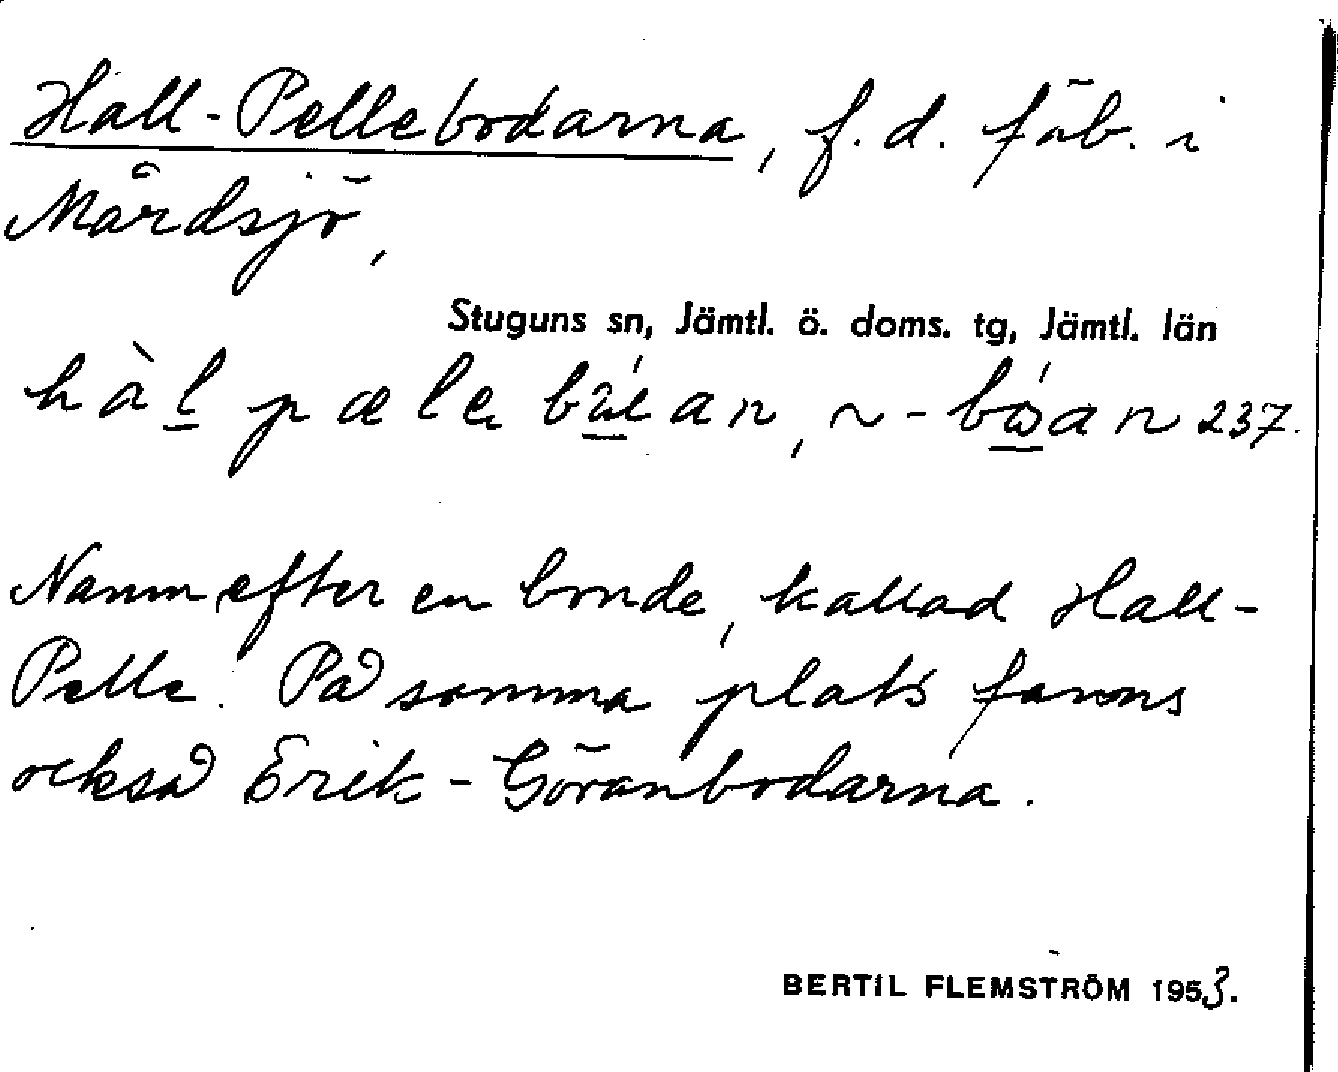 Hall-Pellebodarna, f.d. fäb. i
Mårdsjö,
Stuguns sn, Jämtl. ö. doms. tg, Jämtl. län
hàl pæle
237.
Namn efter en bonde, kallad Hall-
Pelle. På samma plats fanns
också Erik-Göranbodarna.
BERTIL FLEMSTRÖM 1953.